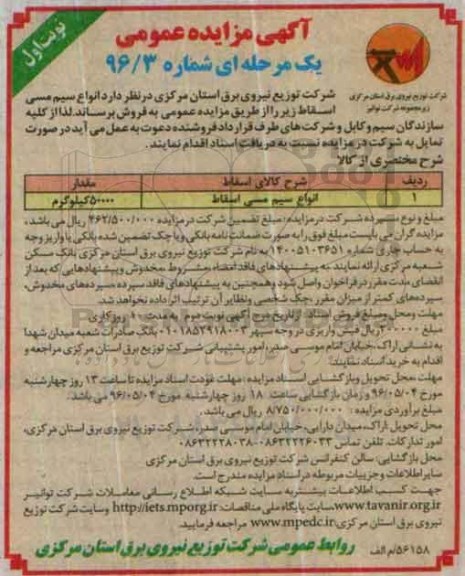 نوبت اول
آگهی مزایده عمومی
یک مرحله ای شماره ۹۶/۳
شرکت توزیع نیروی برق استان مرکزی
زیر مجموعه شرکت توانیر
شرکت توزیع نیروی برق استان مرکزی در نظر دارد انواع سیم مسی
اسقاط زیر را از طریق مزایده عمومی به فروش برساند. لذا از کلیه
سازندگان سیم و کابل و شرکت های طرف قرارداد فروشنده دعوت به عمل می آید در صورت
تمایل به شرکت در مزایده نسبت به دریافت اسناد اقدام نمایند.
شرح مختصری از کالا
ردیف شرح کالای اسقاط مقدار
۱ انواع سیم مسی اسقاط ۵۰۰۰۰کیلوگرم
مبلغ و نوع سپرده شرکت در مزایده: مبلغ تضمین شرکت در مزایده ۴۶۲/۵۰۰/۰۰۰ ریال می باشد،
مزایده گران می بایست مبلغ فوق را به صورت ضمانت نامه بانکی و یا چک تضمین شده بانکی یا واریز وجه
به حساب جاری شماره ۱۴۰۰۵۱۰۳۶۵۱ به نام شرکت توزیع نیروی برق استان مرکزی بانک مسکن
شعبه مرکزی ارائه نمایند. به پیشنهادهای فاقد امضاء، مشروط، مخدوش و پیشنهادهایی که بعد از
انقضای مدت مقرر در فراخوان واصل شود و همچنین به پیشنهادهای فاقد سپرده، سپرده های مخدوش،
سپرده های کمتر از میزان مقرر، چک شخصی و نظایر آن ترتیب اثر داده نخواهد شد.
مهلت و محل و مبلغ فروش اسناد: از تاریخ درج آگهی نوبت دوم به مدت ۱۰ روز کاری
مبلغ ۲۰۰۰۰۰ریال فیش واریزی در وجه سپهر ۰۱۰۱۸۵۲۹۱۸۰۰۳ بانک صادرات شعبه میدان شهدا
به نشانی اراک، خیابان امام موسی صدر، امور پشتیبانی شرکت توزیع برق استان مرکزی مراجعه و
اقدام به خرید اسناد نمایند.
مهلت، محل تحویل و بازگشایی اسناد مزایده: مهلت عودت اسناد مزایده تا ساعت ۱۳ روز چهارشنبه
مورخ ۹۶/۰۵/۰۴ و زمان بازگشایی ساعت ۱۸ روز چهارشنبه مورخ ۹۶/۰۵/۰۴ می باشد.
مبلغ برآوردی مزایده: ۸/۷۵۰/۰۰۰/۰۰۰ ریال می باشد.
محل تحویل: اراک، میدان دارایی، خیابان امام موسی صدر، شرکت توزیع نیروی برق استان مرکزی،
امور تدارکات، تلفن تماس ۰۸۶۳۲۲۲۶۰۳۳-۰۸۶۳۲۲۲۸۰۳۸
محل بازگشایی: سالن کنفرانس شرکت توزیع نیروی برق استان مرکزی
سایر اطلاعات و جزییات مربوطه در اسناد مزایده مندرج است.
جهت کسب اطلاعات بیشتر به سایت شبکه اطلاع رسانی معاملات شرکت توانیر
www.tavanir.org.ir، سایت پایگاه ملی مناقصات: http://iets.mporg.ir وسایت شرکت توزیع
نیروی برق استان مرکزی: www.mpedc.ir مراجعه فرمایید.
۵۶۱۵۸/م الف
روابط عمومی شرکت توزیع نیروی برق استان مرکزی